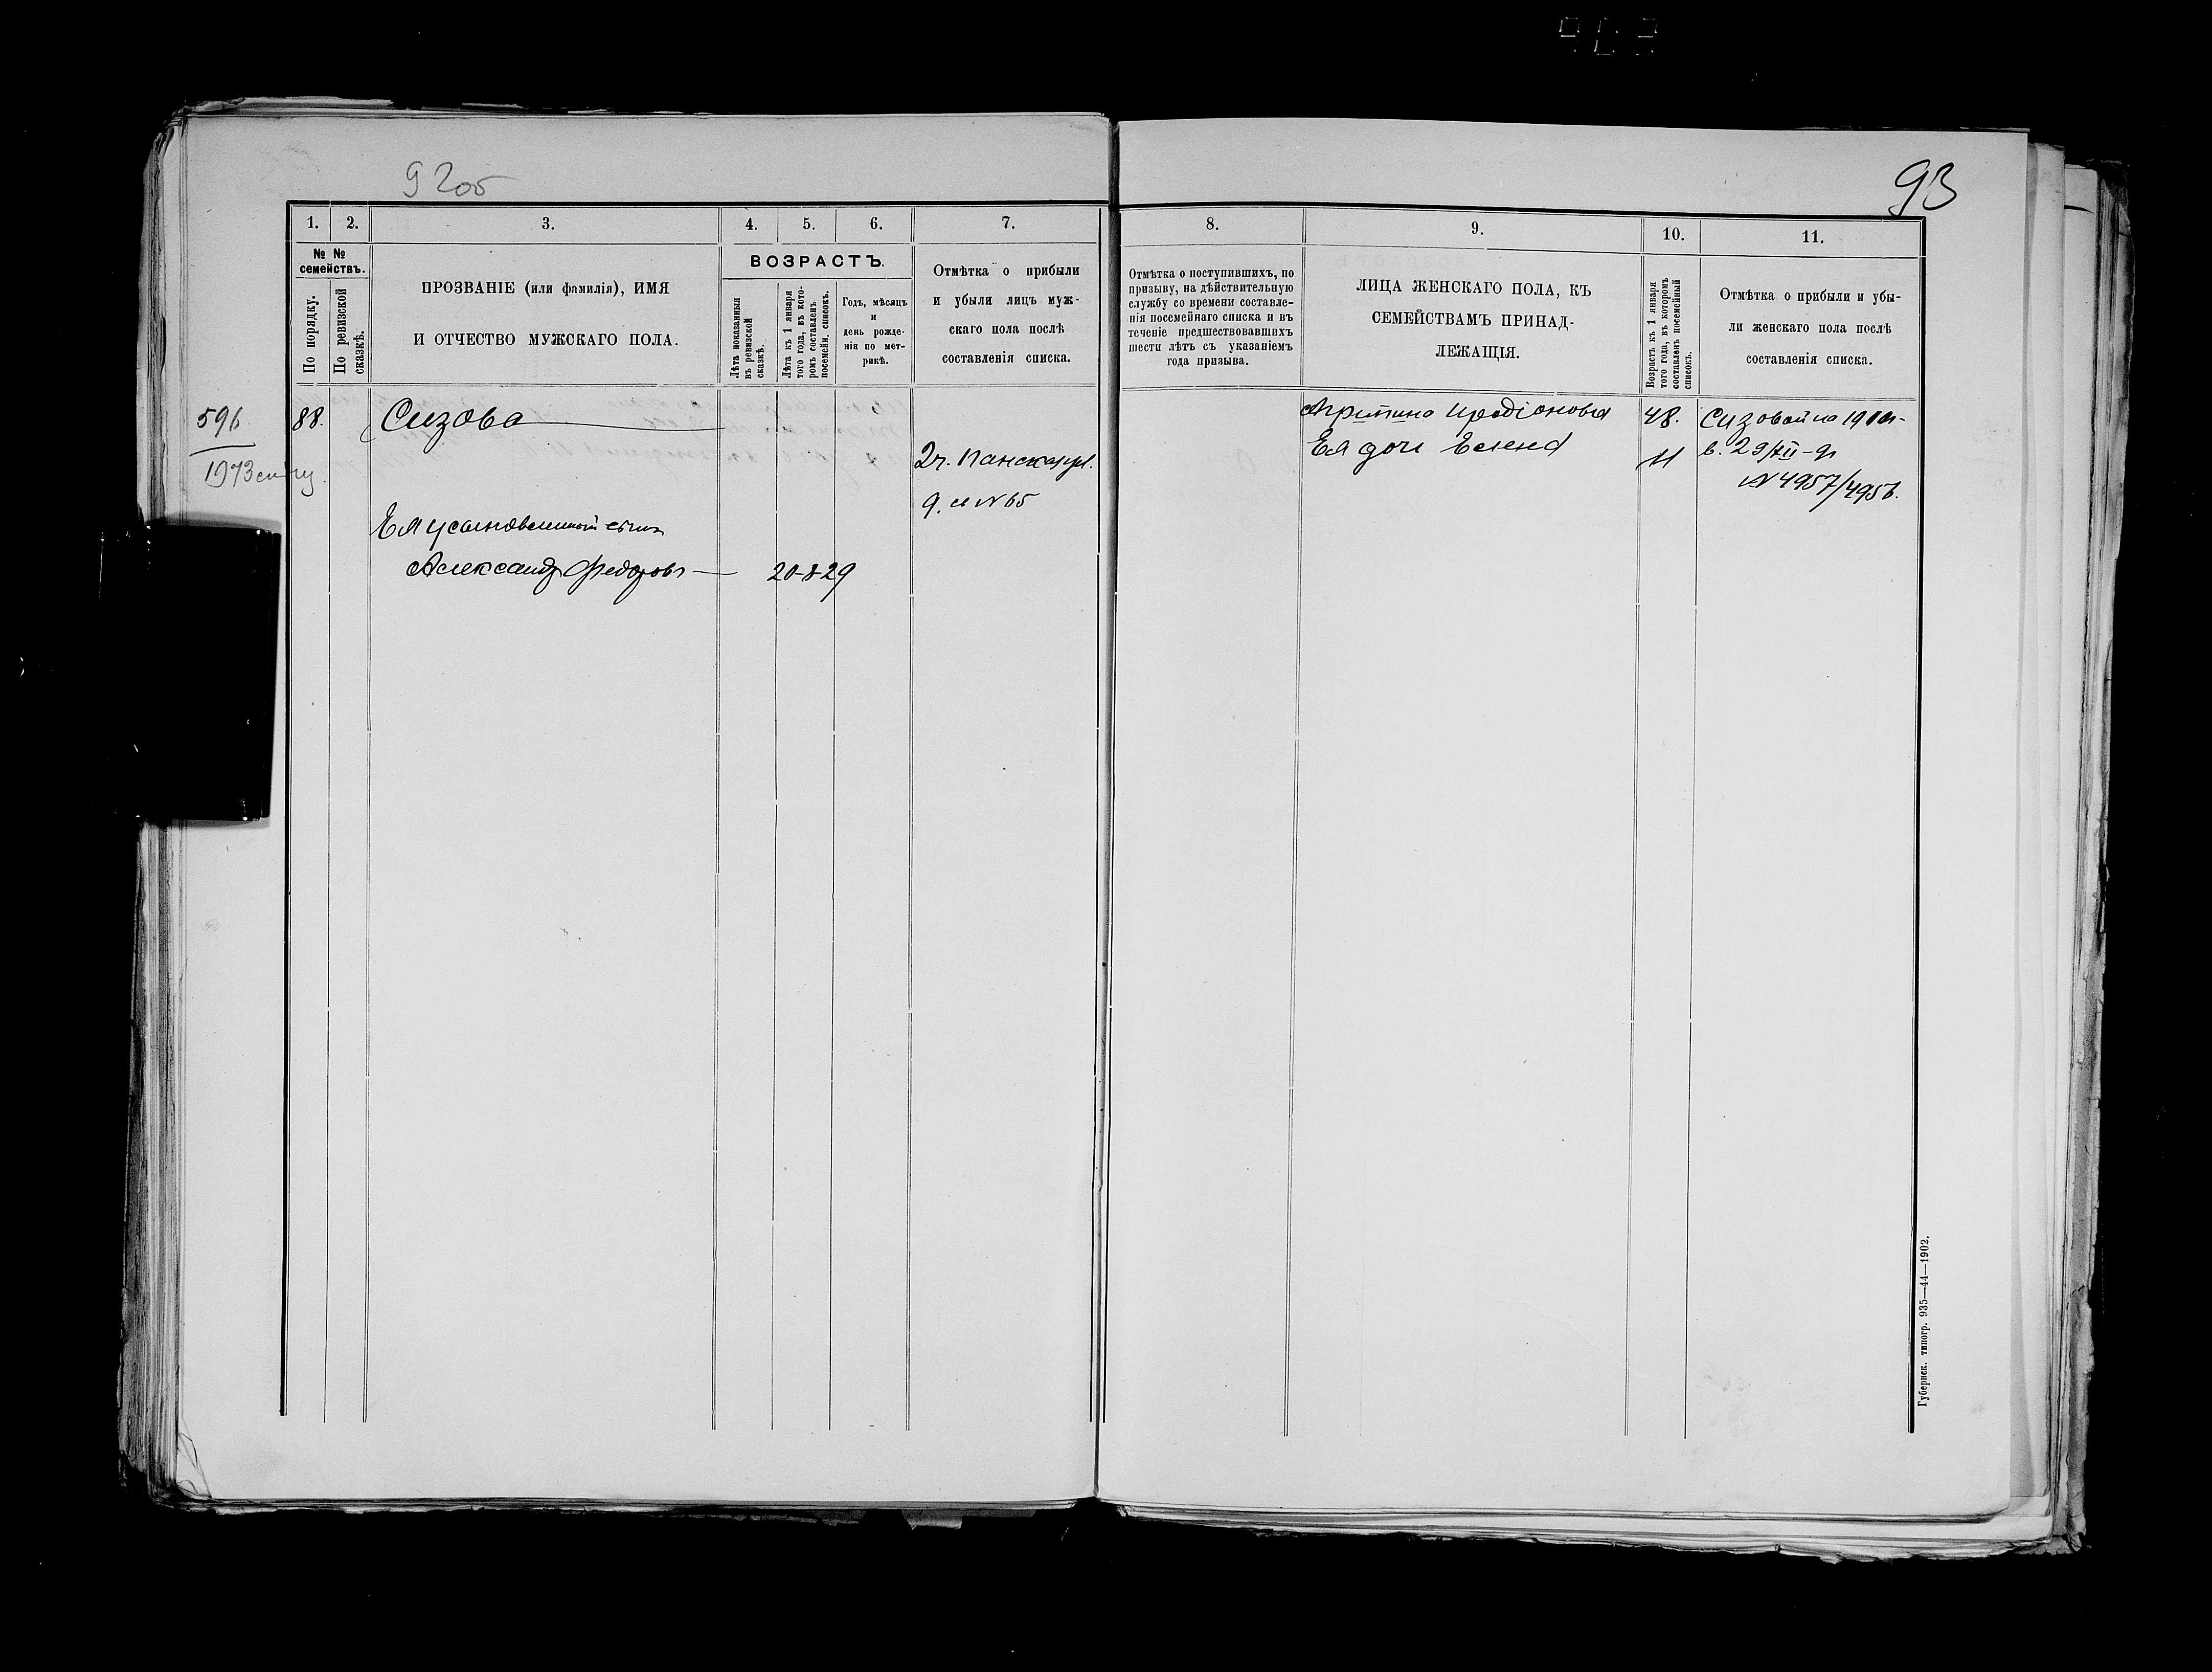 92об
93
1.
2.
3.
4.
5.
6.
7.
8.
9.
10.
11.
№ №
семействъ.
По порядку.
По ревизской
сказкѣ.
ПРОЗВАНІЕ (или фамилія), ИМЯ
И ОТЧЕСТВО МУЖСКАГО ПОЛА.
ВОЗРАСТЪ.
Лѣта показанныя
въ ревизской
сказкѣ.
Лѣта къ 1 января
того года, въ кото-
ромъ составленъ
посемейн. списокъ.
Годъ, мѣсяцъ
и
день рожде-
нія по мет-
рикѣ.
Отмѣтка о прибыли
и убыли лицъ муж-
скаго пола послѣ
составленія списка.
Отмѣтка о поступившихъ, по
призыву, на дѣйствительную
службу со времени составле-
нія посемейнаго списка и въ
теченіе предшествовавшихъ
шести лѣтъ съ указаніемъ
года призыва.
ЛИЦА ЖЕНСКАГО ПОЛА, КЪ
СЕМЕЙСТВАМЪ ПРИНАД-
ЛЕЖАЩІЯ.
Возрастъ къ 1 января
того года, въ которомъ
составленъ посемейный
списокъ.
Отмѣтка о прибыли и убы-
ли женскаго пола послѣ
составленія списка.
596
1973
88.
Сизова
2ч. Панская ул.
д. № 65
Ея усыновленный сынъ
Александръ Федоровъ — 20-8-29
Иродіонова 48.
Ея дочь Елена 11
Сизовой на
в. 29/XII
№ 4957/4956.
Губернск. типогр. 935—44—1902.